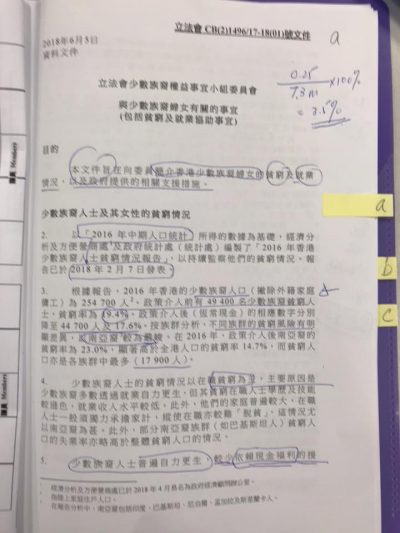 立法會 CB(2)1496/17-18(01)號文件
2018年6月5日
資料文件
a
0.25
7.3 m
×100%
= 3.5%
立法會少數族裔權益事宜小組委員會
與少數族裔婦女有關的事宜
(包括貧窮及就業協助事宜)
目的
本文件旨在向委員簡介香港少數族裔婦女的貧窮及就業
情況，以及政府提供的相關支援措施。
少數族裔人士及其女性的貧窮情況
2. 以「2016 年中期人口統計」所得的數據為基礎，經濟分
析及方便營商處¹及政府統計處(統計處)編製了「2016 年香港
少數族裔人士貧窮情況報告」，以持續監察他們的貧窮情況。報
告已於 2018 年 2 月 7 日發表。
3. 根據報告，2016 年香港的少數族裔人口(撇除外籍家庭
傭工)為 254 700 人²，政策介入前有 49 400 名少數族裔貧窮人
士，貧窮率為 19.4%。政策介入後(恆常現金)的相應數字分別
降至 44 700 人及 17.6%。按族群分析，不同族群的貧窮風險有明
顯差異，以南亞裔³較為嚴峻。在 2016 年，政策介入後南亞裔的
貧窮率為 23.0%，顯著高於全港人口的貧窮率 14.7%，而貧窮人
口亦是各族群中最多(17 900 人)。
4. 少數族裔人士的貧窮情況以在職貧窮為主，主要原因是
少數族裔多數透過就業自力更生，但其貧窮在職人士學歷及技能
較遜色，就業收入水平較低。此外，他們的家庭普遍較大，在職
人士一般須獨力承擔家計，縱使在職亦較難「脫貧」，這情況尤
以南亞裔為甚。此外，部分南亞裔族群(如巴基斯坦人)貧窮人
口的失業率亦略高於整體貧窮人口的情況。
5. 少數族裔人士普遍自力更生，較少依賴現金福利的援
¹ 經濟分析及方便營商處已於 2018 年 4 月易名為政府經濟顧問辦公室。
² 指陸上家庭住戶人口。
³ 在報告分析中，南亞裔包括印度、巴基斯坦、尼泊爾、孟加拉及斯里蘭卡人。
a
b
c
Members
Members